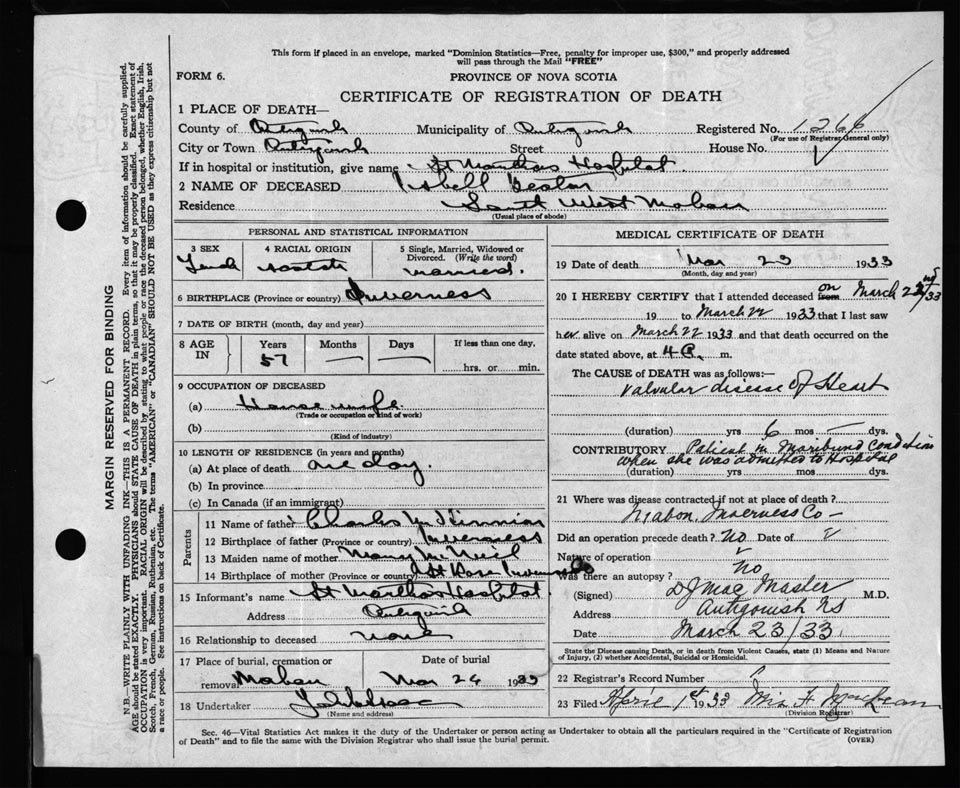 This form if placed in an envelope, marked "Dominion Statistics—Free, penalty for improper use, $300," and properly addressed
will pass through the Mail "FREE"
FORM 6.
PROVINCE OF NOVA SCOTIA
CERTIFICATE OF REGISTRATION OF DEATH
1 PLACE OF DEATH—
County of Antigonish Municipality of Antigonish Registered No. 1266
(For use of Registrar General only)
City or Town Antigonish Street House No.
If in hospital or institution, give name St Marthas Hospital
2 NAME OF DECEASED Isbell
Residence South West Mabou
(Usual place of abode)
PERSONAL AND STATISTICAL INFORMATION
3 SEX 4 RACIAL ORIGIN 5 Single, Married, Widowed or
Divorced. (Write the word)
Female Scotch married.
6 BIRTHPLACE (Province or country) Inverness
7 DATE OF BIRTH (month, day and year)
8 AGE IN Years Months Days If less than one day,
57 — — hrs. or min.
9 OCCUPATION OF DECEASED
(a) House wife
(Trade or occupation or kind of work)
(b)
(Kind of industry)
10 LENGTH OF RESIDENCE (in years and months)
(a) At place of death one day.
(b) In province
(c) In Canada (if an immigrant)
Parents
11 Name of father Charles
12 Birthplace of father (Province or country) Inverness
13 Maiden name of mother Mary McNeil
14 Birthplace of mother (Province or country)
15 Informant's name St Marthas Hospital.
Address Antigonish
16 Relationship to deceased none
17 Place of burial, cremation or Date of burial
removal Mabou Mar 24 1933
18 Undertaker
(Name and address)
MEDICAL CERTIFICATE OF DEATH
19 Date of death Mar 23 1933
(Month, day and year)
20 I HEREBY CERTIFY that I attended deceased from on March 22nd/33
19 to March 22 1933 that I last saw
her alive on March 22 1933 and that death occurred on the
date stated above, at 4 P. m.
The CAUSE of DEATH was as follows:—
Valvular disease of Heart
(duration) yrs 6 mos — dys.
CONTRIBUTORY Patient in Moribund Condition
when she was admitted to Hospital
(duration) yrs mos dys.
21 Where was disease contracted if not at place of death?
Mabou, Inverness Co—
Did an operation precede death? no Date of
Nature of operation
Was there an autopsy? no
(Signed) DJ MacMaster M.D.
Address Antigonish NS
Date March 23/33
State the Disease causing Death, or in death from Violent Causes, state (1) Means and Nature
of Injury, (2) whether Accidental, Suicidal or Homicidal.
22 Registrar's Record Number
23 Filed April 1st 1933 F. MacLean
(Division Registrar)
Sec. 46—Vital Statistics Act makes it the duty of the Undertaker or person acting as Undertaker to obtain all the particulars required in the "Certificate of Registration
of Death" and to file the same with the Division Registrar who shall issue the burial permit.
(OVER)
MARGIN RESERVED FOR BINDING
N.B.—WRITE PLAINLY WITH UNFADING INK—THIS IS A PERMANENT RECORD. Every item of information should be carefully supplied.
AGE should be stated EXACTLY. PHYSICIANS should STATE CAUSE OF DEATH in plain terms, so that it may be properly classified. Exact statement of
OCCUPATION is very important. RACIAL ORIGIN will be described by stating to what people or race the deceased person belonged, whether English, Irish,
Scotch, French, German, Russian, Ruthenian, etc. The terms "AMERICAN" or "CANADIAN" SHOULD NOT BE USED as they express citizenship but not
a race or people. See instructions on back of Certificate.